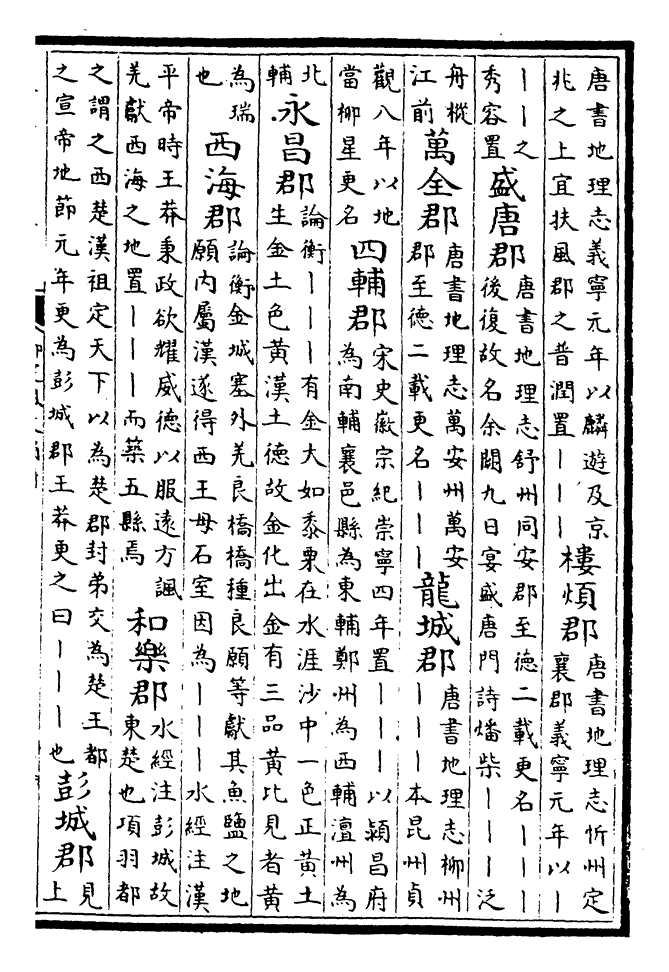 唐書地理志義寧元年以麟遊及京
兆之上宜扶風郡之普潤置丨丨丨
樓煩郡
唐書地理志忻州定
襄郡義寧元年以丨
丨丨之
秀容置
盛唐郡
唐書地理志舒州同安郡至德二載更名丨丨丨
後復故名余闕九日宴盛唐門詩燔柴丨丨丨泛
舟樅
江前
萬全郡
唐書地理志萬安州萬安
郡至德二載更名丨丨丨
龍城郡
唐書地理志柳州
丨丨丨本昆州貞
觀八年以地
當柳星更名
四輔郡
宋史徽宗紀崇寧四年置丨丨丨以潁昌府
為南輔襄邑縣為東輔鄭州為西輔澶州為
北
輔
永昌郡
論衡丨丨丨有金大如黍粟在水涯沙中一色正黃土
生金土色黃漢土德故金化出金有三品黃比見者黃
為瑞
也
西海郡
論衡金城塞外羌良橋橋種良願等獻其魚鹽之地
願內屬漢遂得西王母石室因為丨丨丨水經注漢
平帝時王莽秉政欲耀威德以服遠方諷
羌獻西海之地置丨丨丨而築五縣焉
和樂郡
水經注彭城故
東楚也項羽都
之謂之西楚漢祖定天下以為楚郡封弟交為楚王都
之宣帝地節元年更為彭城郡王莽更之曰丨丨丨也
彭城郡
見
上